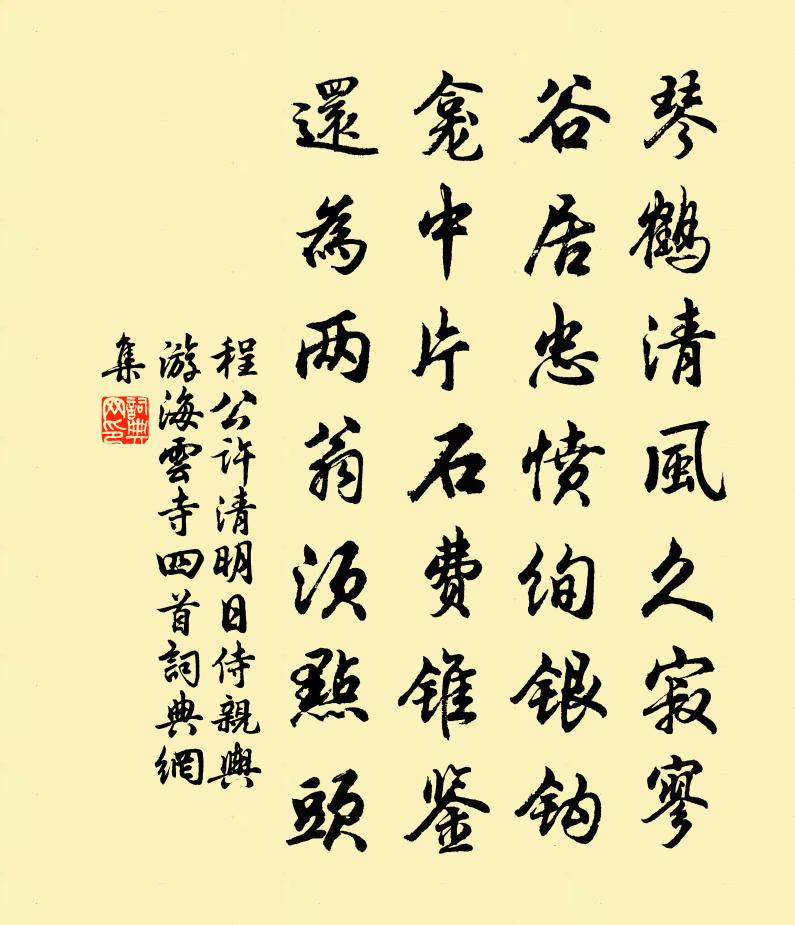 琴鶴清風久寂寥
谷居忠憤絢銀鈎
龕中片石費錐鑿
還為兩翁須點頭
程公許清明日侍親輿
游海雲寺四首詞典網
集
詞典
网印